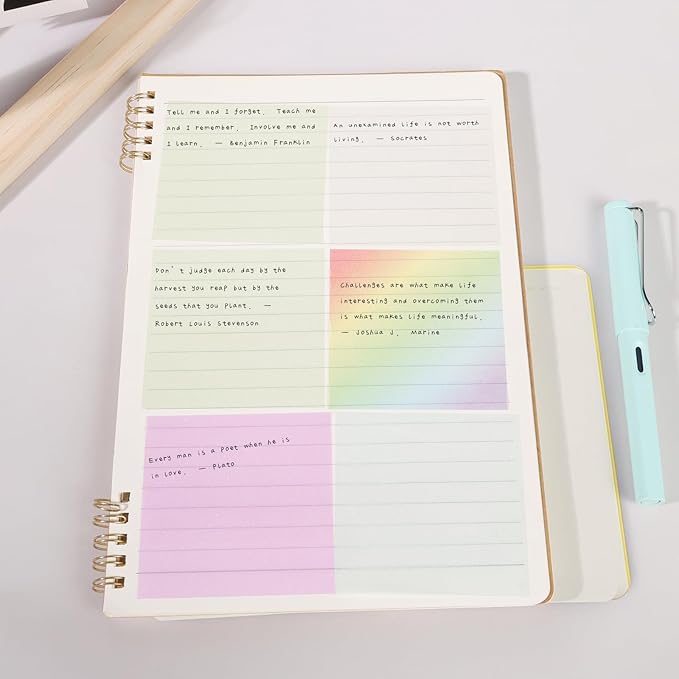 Tell me and I forget. Teach me
and I remember. Involve me and
I learn. — Benjamin Franklin
An unexamined life is not worth
living. — Socrates
Don't judge each day by the
harvest you reap but by the
seeds that you plant. —
Robert Louis Stevenson
Challenges are what make life
interesting and overcoming them
is what makes life meaningful.
— Joshua J. Marine
Every man is a poet when he is
in love. — Plato